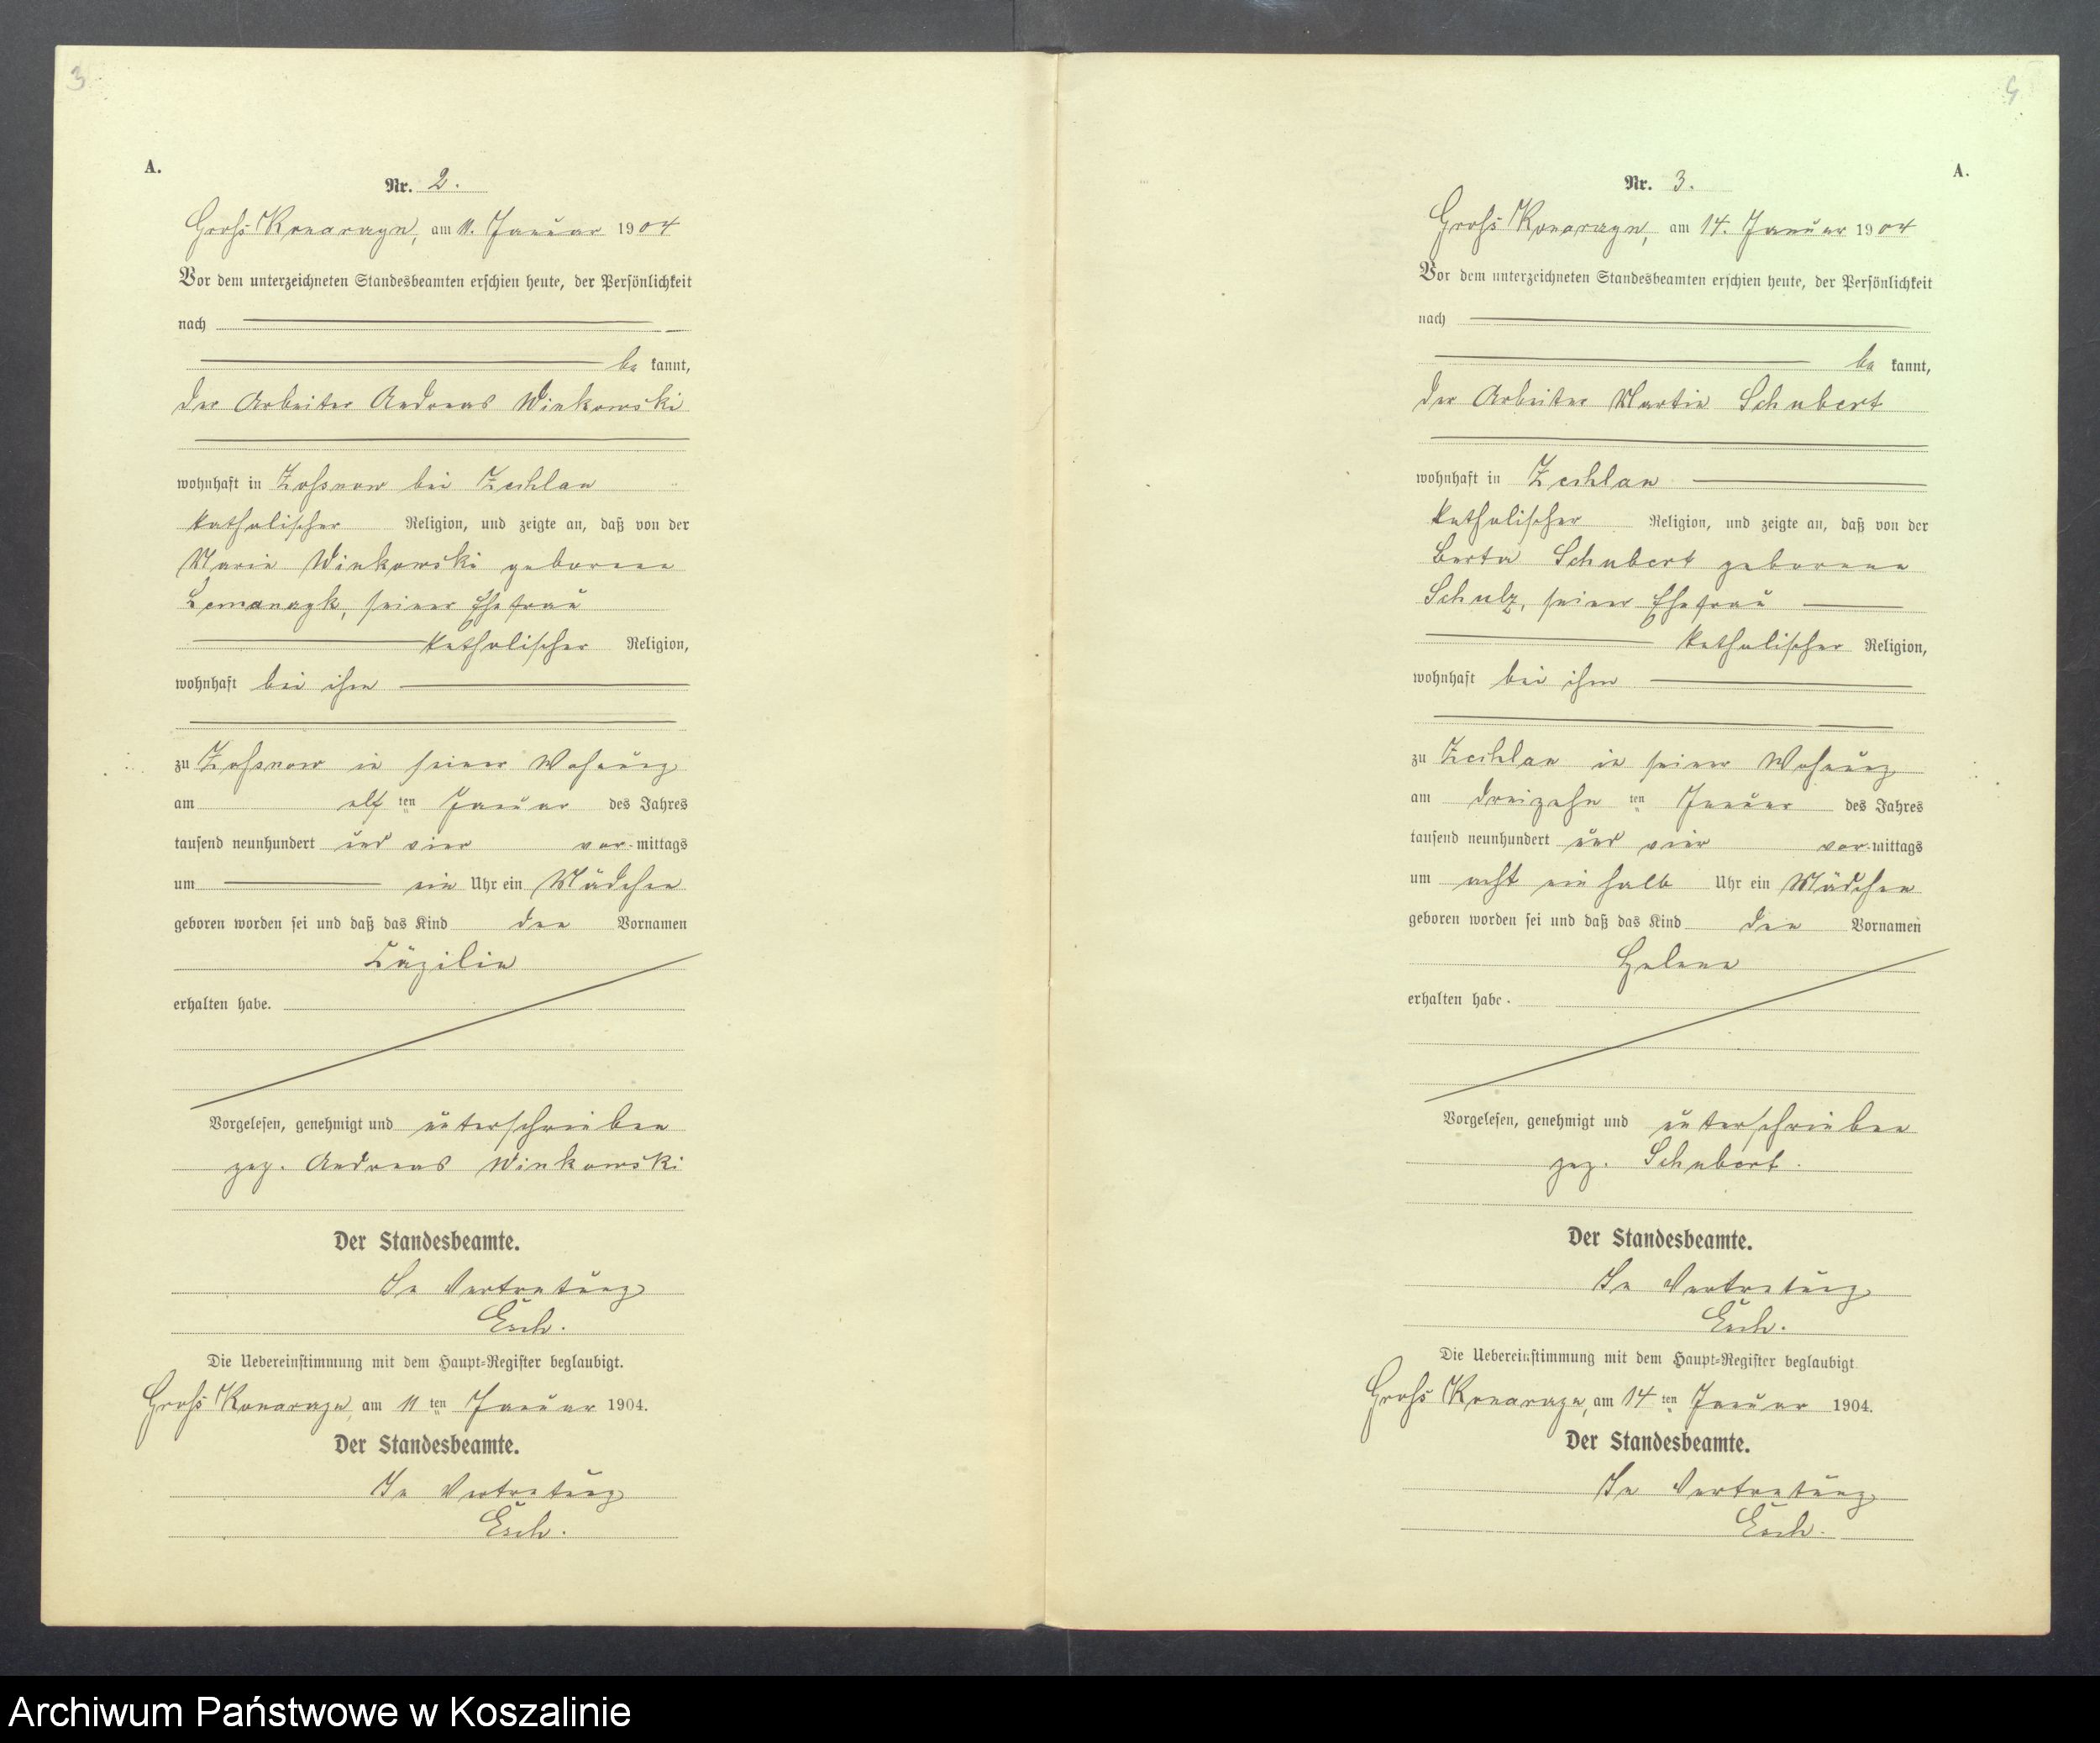 3
A.
Nr. 2.
Groß Konarczyn, am 11. Januar 1904
Vor dem unterzeichneten Standesbeamten erschien heute, der Persönlichkeit
nach
be kannt,
der Arbeiter Andreas Winkowski
wohnhaft in Zoßnow bei Zechlau
katholischer Religion, und zeigte an, daß von der
Marie Winkowski geborene
seiner Ehefrau
katholischer Religion,
wohnhaft bei ihm
zu Zoßnow in seiner Wohnung
am elf ten Januar des Jahres
tausend neunhundert und vier vor mittags
um ein Uhr ein Mädchen
geboren worden sei und daß das Kind den Vornamen
Cäzilie
erhalten habe.
Vorgelesen, genehmigt und unterschrieben
gez. Andreas Winkowski
Der Standesbeamte.
In Vertretung
Esch.
Die Uebereinstimmung mit dem Haupt-Register beglaubigt.
Groß Konarczyn, am 11 ten Januar 1904.
Der Standesbeamte.
In Vertretung
Esch.
A.
Nr. 3.
Groß Konarczyn, am 14. Januar 1904
Vor dem unterzeichneten Standesbeamten erschien heute, der Persönlichkeit
nach
be kannt,
der Arbeiter Martin Schubert
wohnhaft in Zechlau
katholischer Religion, und zeigte an, daß von der
Berta Schubert geborene
Schulz, seiner Ehefrau
katholischer Religion,
wohnhaft bei ihm
zu Zechlau in seiner Wohnung
am dreizehn ten Januar des Jahres
tausend neunhundert und vier vor mittags
um acht ein halb Uhr ein Mädchen
geboren worden sei und daß das Kind den Vornamen
Helene
erhalten habe.
Vorgelesen, genehmigt und unterschrieben
gez. Schubert.
Der Standesbeamte.
In Vertretung
Esch.
Die Uebereinstimmung mit dem Haupt-Register beglaubigt.
Groß Konarczyn, am 14 ten Januar 1904.
Der Standesbeamte.
In Vertretung
Esch.
Archiwum Państwowe w Koszalinie